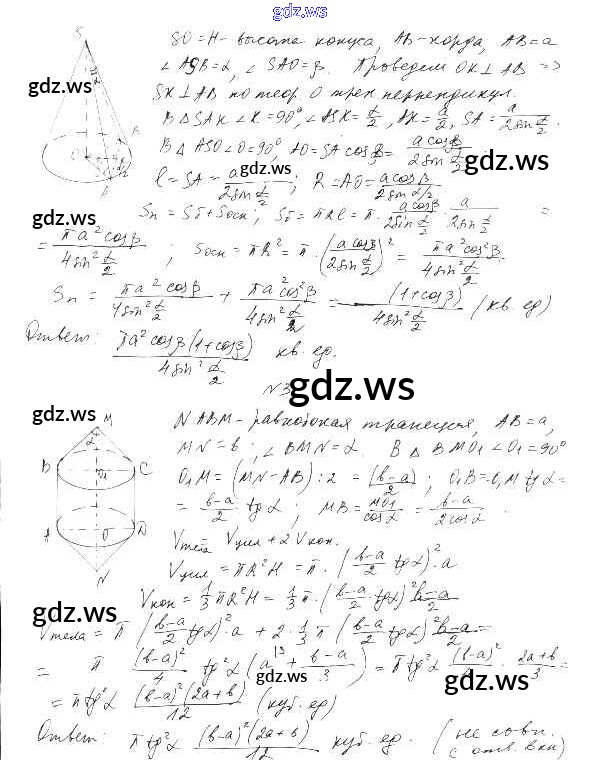 gdz.ws
SO = H - высота конуса, AB - хорда, AB = a
∠ASB = α, ∠SAO = β. Проведем OK ⊥ AB =>
SK ⊥ AB по теор. о трех перпендикул.
В Δ SAK ∠K = 90°, ∠ASK = α/2, AK = a/2, SA = a/(2sin α/2).
В Δ ASO ∠O = 90°, AO = SA cosβ = a cosβ/(2sin α/2);
l = SA = a/(2sin α/2); R = AO = a cosβ/(2sin α/2)
Sп = Sб + Sосн; Sб = πRl = π · a cosβ/(2sin α/2) · a/(2sin α/2) =
= πa² cosβ/(4sin² α/2); Sосн = πR² = π · (a cosβ/(2sin α/2))² = πa² cos²β/(4sin² α/2)
Sп = πa² cosβ/(4sin² α/2) + πa² cos²β/(4sin² α/2) = (1 + cosβ)/(4sin² α/2) (кв. ед)
Ответ: πa² cosβ (1 + cosβ)/(4sin² α/2) кв. ед.
N 3
gdz.ws
NABM - равнобокая трапеция, AB = a,
MN = b; ∠BMN = α. В Δ BMO₁ ∠O₁ = 90°
O₁M = (MN - AB) : 2 = (b-a)/2; O₁B = O₁M tgα =
= (b-a)/2 tgα; MB = MO₁/cosα = (b-a)/(2cosα).
Vтела Vцил + 2Vкон.
Vцил = πR²H = π · ((b-a)/2 tgα)² · a
Vкон = 1/3 πR²H = 1/3 π · ((b-a)/2 tgα)² (b-a)/2
Vтела = π ((b-a)/2 tgα)² · a + 2 · 1/3 π ((b-a)/2 tgα)² (b-a)/2 =
= π (b-a)²/4 tg²α (a + (b-a)/3) = π tg²α (b-a)²/4 · (2a+b)/3 =
= π tg²α (b-a)²(2a+b)/12 (куб. ед)
Ответ: π tg²α (b-a)²(2a+b)/12 куб. ед. (не совп.
с отв. в кн)